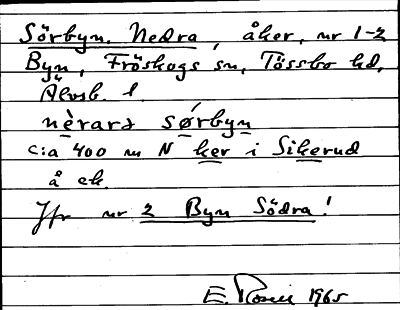 Sörbyn, Nedra, åker, nr 1-2
Byn, Fröskogs sn, Tössbo hd,
Älvsb. l.
nèrarə sørbyn
c:a 400 m N ker i Sikerud
å ek.
Jfr nr 2 Byn Södra!
E. Rosén 1965